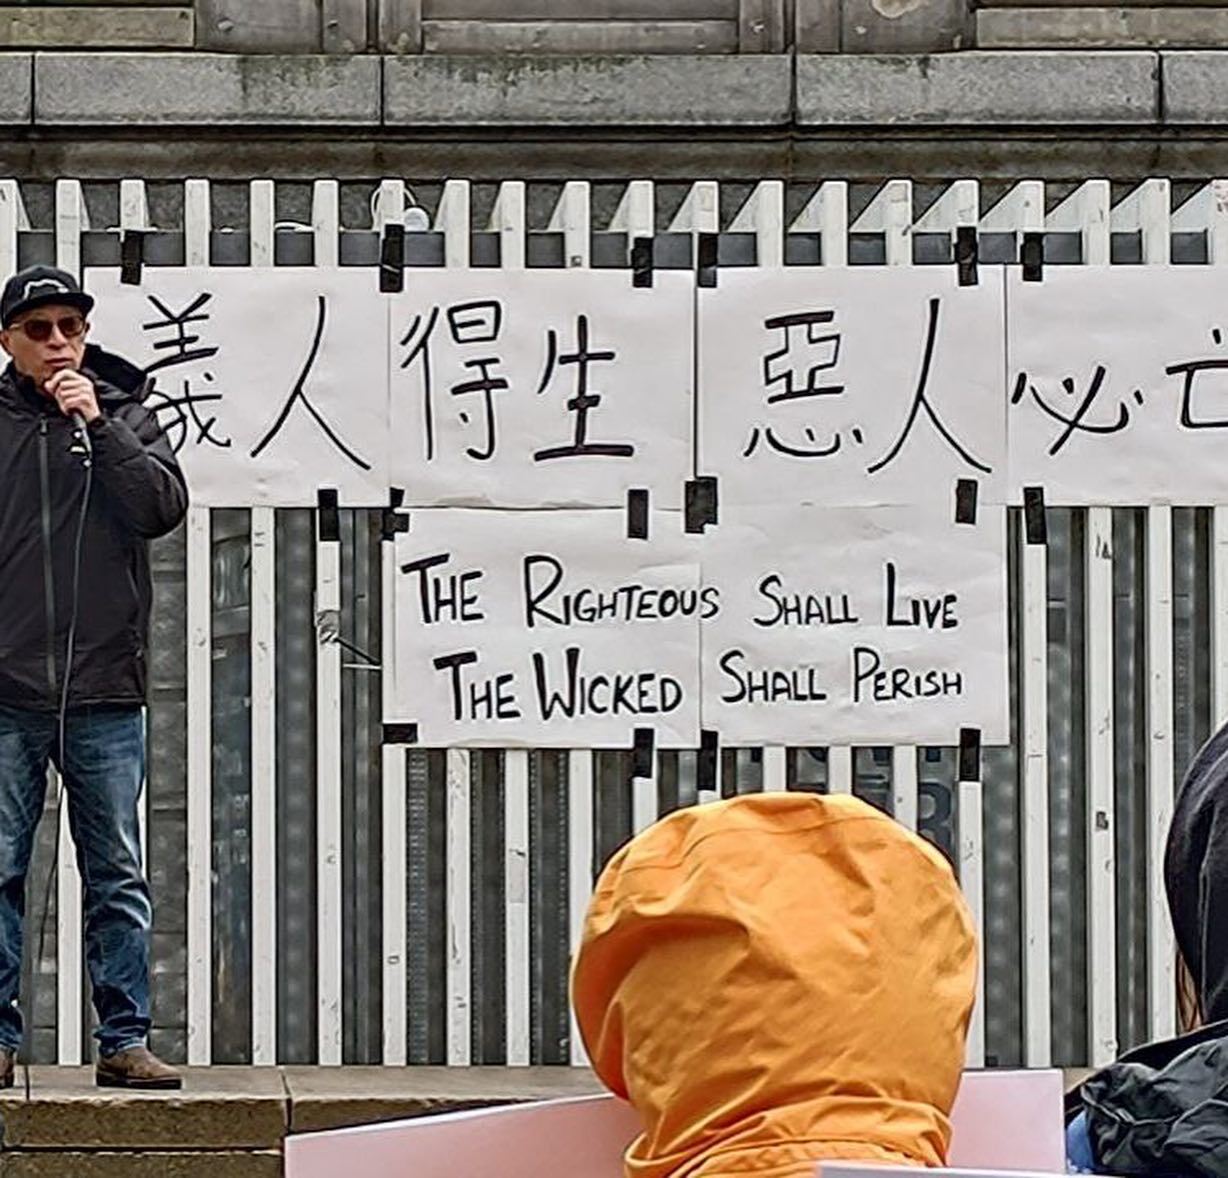 義人得生 惡人必亡
THE RIGHTEOUS SHALL LIVE
THE WICKED SHALL PERISH